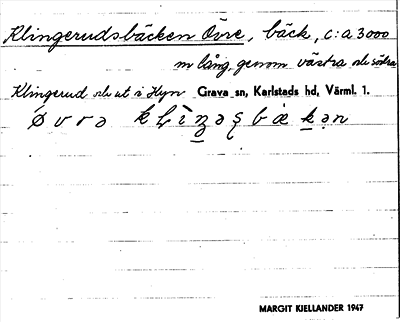 Klingerudsbäcken Övre, bäck, c:a 3000
m lång, genom västra o. södra
Klingerud o. ut i Hyn Grava sn, Karlstads hd, Värml. l.
øvrə
MARGIT KJELLANDER 1947